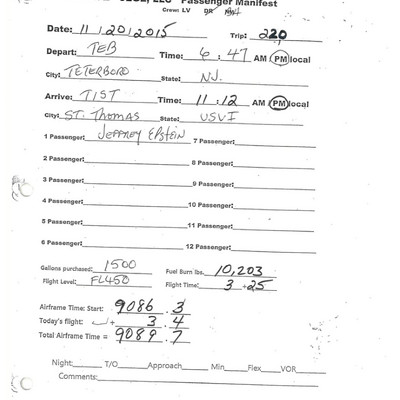 LLC Passenger Manifest
Crew: LV
Date: 11/20/2015 Trip: 220
Depart: TEB Time: 6:47 AM PM local
City: TETERBORO State: NJ.
Arrive: TIST Time: 11:12 AM PM local
City: ST. THOMAS State: USVI
1 Passenger: JEFFREY EPSTEIN 7 Passenger:
2 Passenger: 8 Passenger:
3 Passenger: 9 Passenger:
4 Passenger: 10 Passenger:
5 Passenger: 11 Passenger:
6 Passenger: 12 Passenger:
Gallons purchased: 1500 Fuel Burn lbs. 10,203
Flight Level: FL450 Flight Time: 3.25
Airframe Time: Start: 9086.3
Today's flight: + 3.4
Total Airframe Time = 9089.7
Night: T/O Approach Min Flex VOR
Comments: